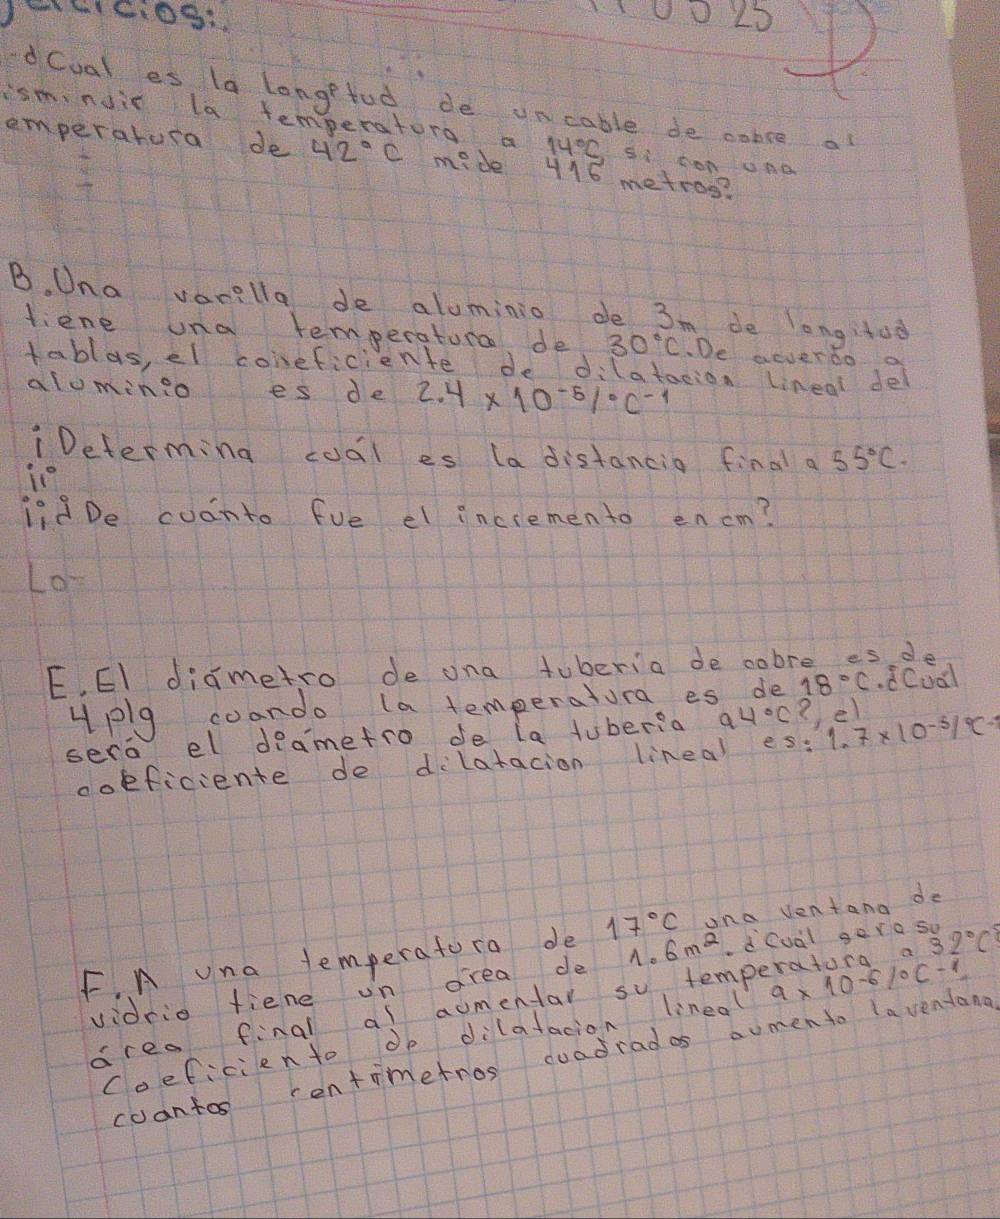 ercicios:
110525
-¿Cual es la longitud de un cable de cobre al
isminuir la temperatura a 14°C si con una
emperatura de 42°C mide 416 metros?
B. Una varilla de aluminio de 3m de longitud
tiene una temperatura de 30°C. De acuerdo a
tablas, el coneficiente de dilatacion lineal del
aluminio es de 2.4 x 10-5/°C-1
i Determina cuál es la distancia final a 55°C.
ii
ii¿De cuánto fue el incremento en cm?
Lo-
E. El diámetro de una tubería de cobre es de
4 plg cuando la temperatura es de 18°C. ¿Cual
será el diámetro de la tuberia a 4°C?, el
coeficiente de dilatacion lineal es: 1.7 x 10-5/°C-1
F. A una temperatura de 17°C una ventana de
vidrio tiene un área de 1.6m². ¿Cuál sera su
área final al aumentar su temperatura a 32°C?
Coeficiento de dilatacion lineal 9 x 10-6/°C-1
cuantos centimetros cuadrados aumento la ventana